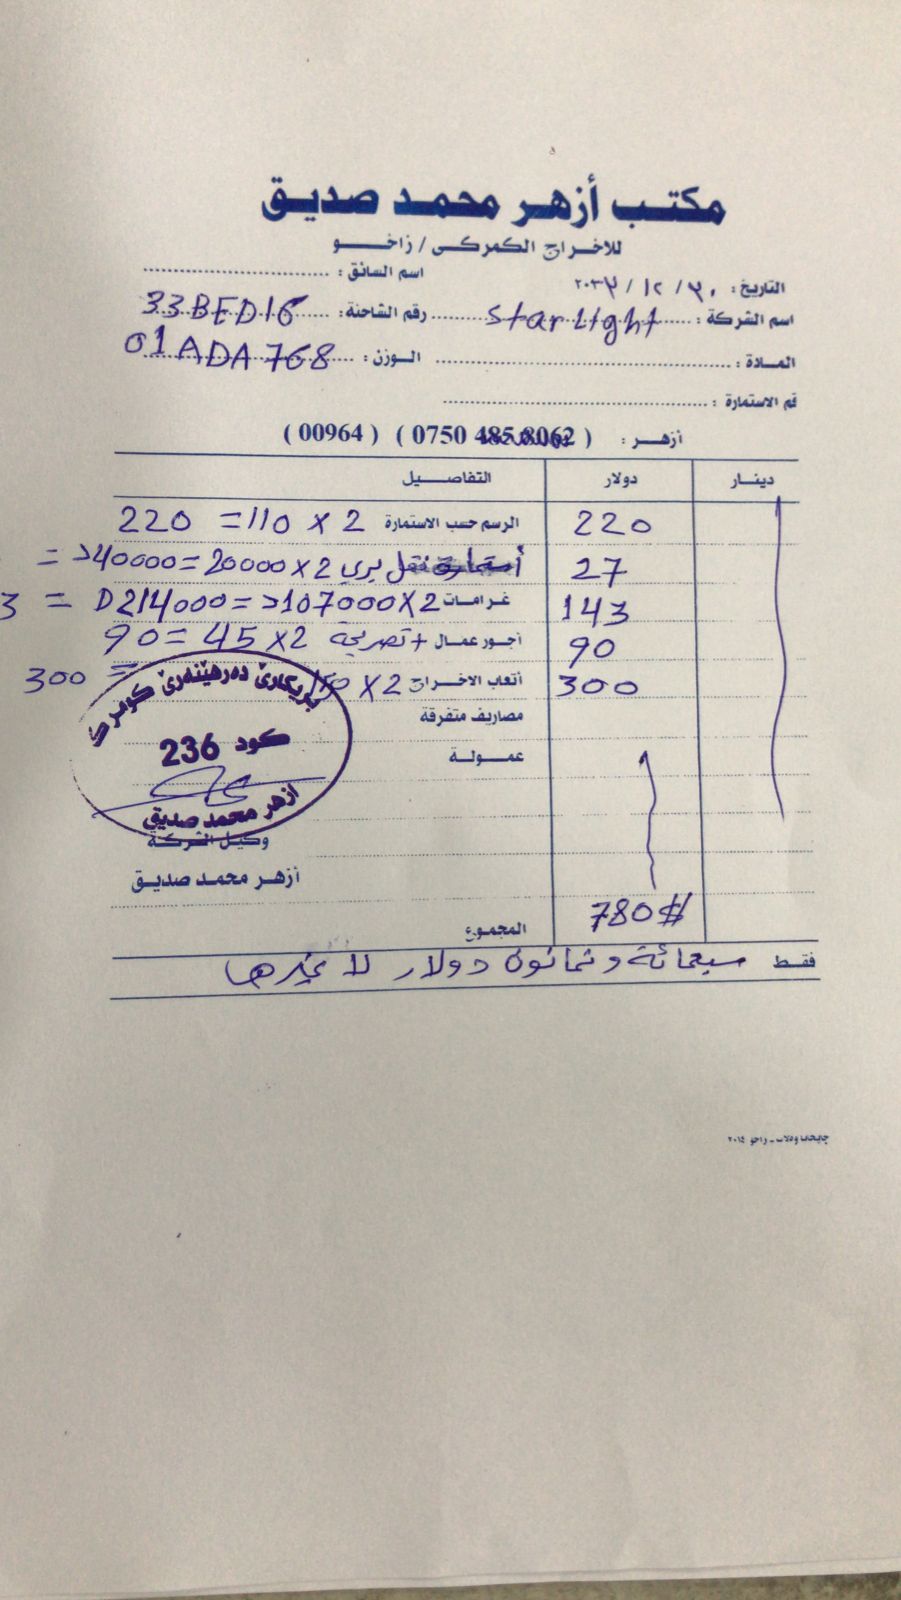 مكتب أزهر محمد صديق
للاخراج الكمركى / زاخو
التاريخ : ٢٠ / ١٢ / اسم السائق :
اسم الشركة : starlight رقم الشاحنة: 33BED16
المادة : الوزن : 01ADA768
قم الاستمارة :
أزهر : ( 0750 485 8062 ) ( 00964 )
دينار دولار التفاصيل
220 الرسم حسب الاستمارة 2 × 110 = 220
27 نقل بري 2 × 20000 = 40000 =
143 غرامات 2 × 107000 = D214000 = 3
90 أجور عمال + تصريحة 2 × 45 = 90
300 أتعاب الاخراج 2 × 150 = 300
مصاريف متفرقة
عمولة
بريكارێ دەرهێنەرێ كومرك
كود 236
أزهر محمد صديق
وكيل الشركة
أزهر محمد صديق
780# المجموع
فقط سبعمائة وثمانون دولار لا غيرها